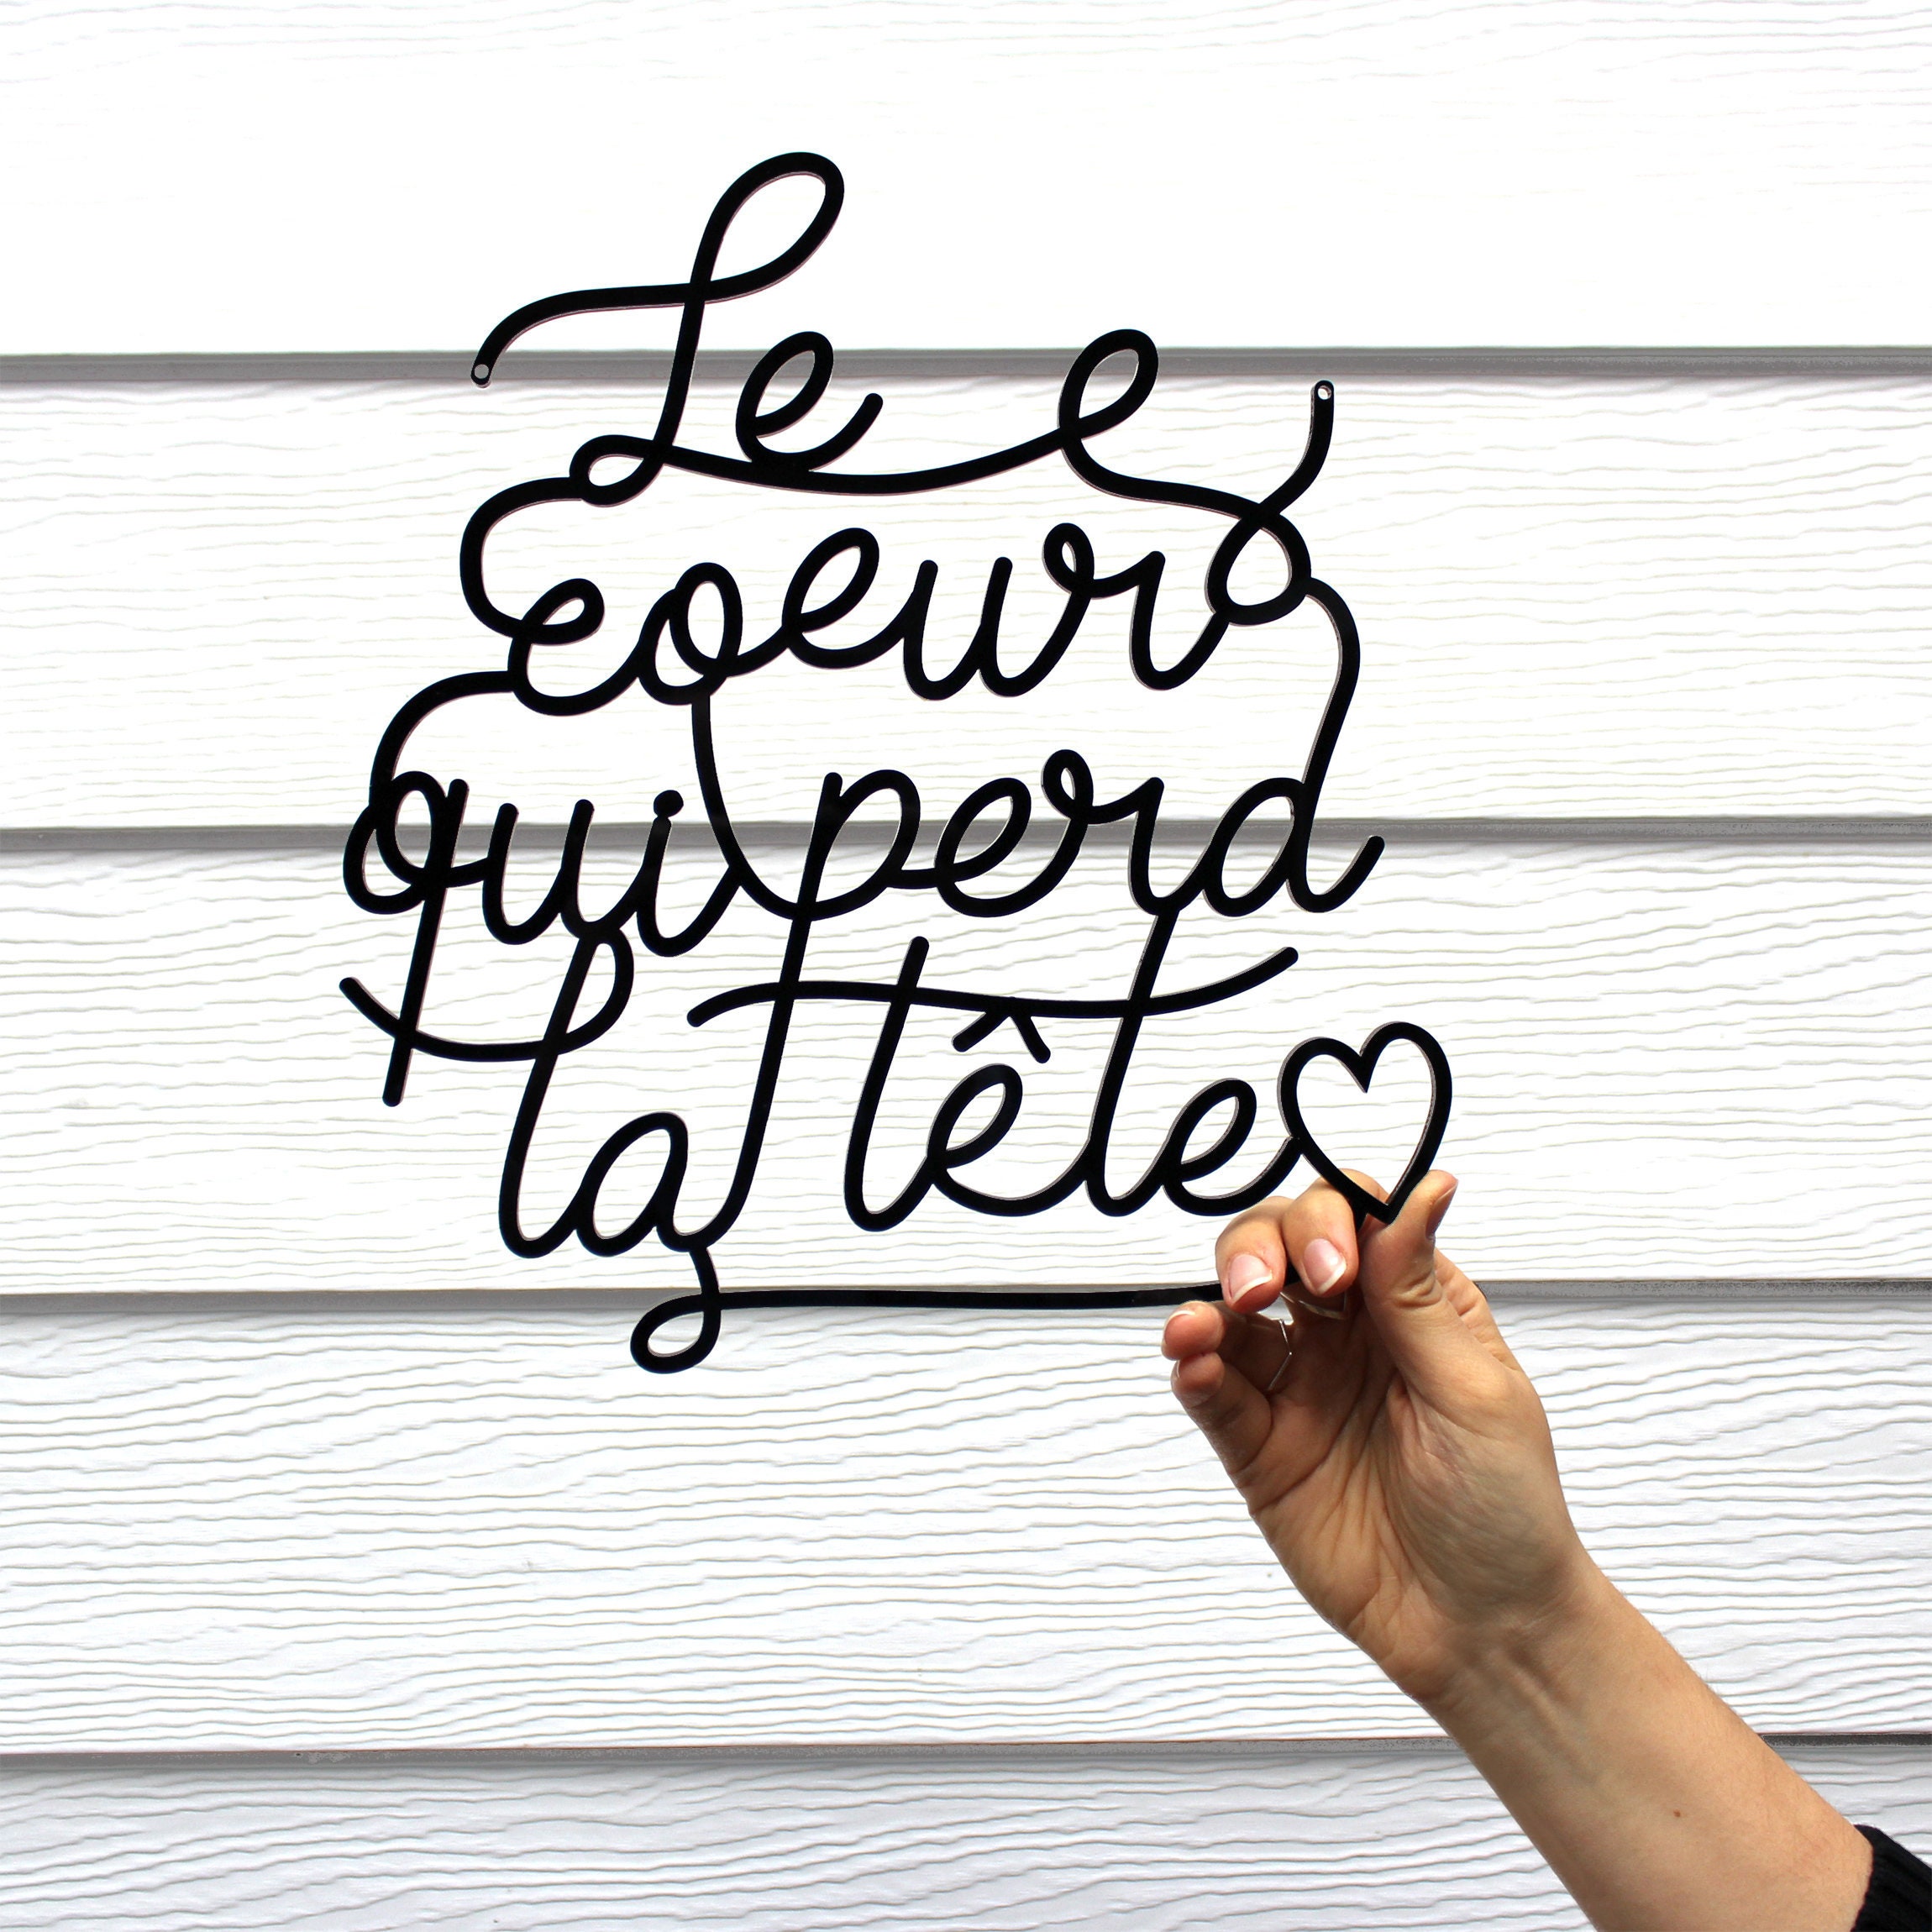 Le
coeur
qui perd
la tête